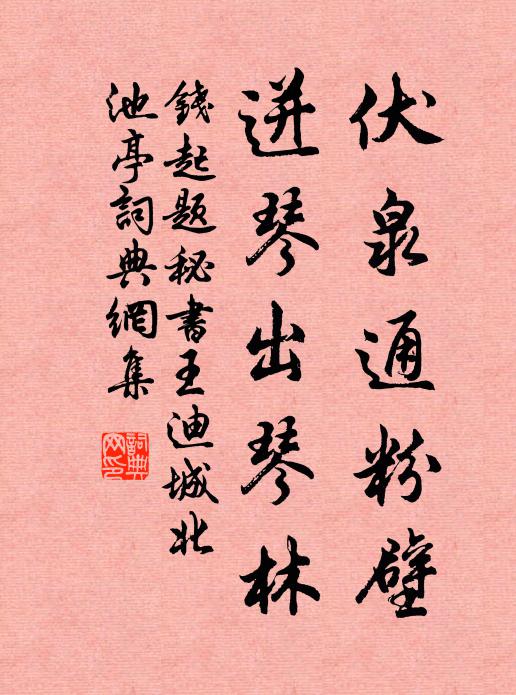 伏泉通粉壁
迸琴出琴林
錢起題秘書王迪城北
池亭詞典網集
詞典網印